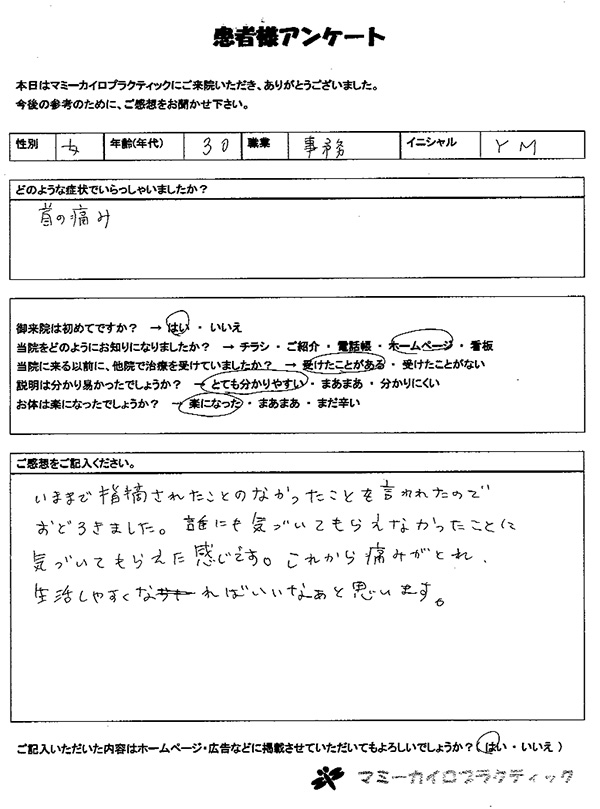 患者様アンケート
本日はマミーカイロプラクティックにご来院いただき、ありがとうございました。
今後の参考のために、ご感想をお聞かせ下さい。
性別 女 年齢(年代) 30 職業 事務 イニシャル Y M
どのような症状でいらっしゃいましたか？
首の痛み
御来院は初めてですか？ → はい ・ いいえ
当院をどのようにお知りになりましたか？ → チラシ ・ ご紹介 ・ 電話帳 ・ ホームページ ・ 看板
当院に来る以前に、他院で治療を受けていましたか？ → 受けたことがある ・ 受けたことがない
説明は分かり易かったでしょうか？ → とても分かりやすい ・ まあまあ ・ 分かりにくい
お体は楽になったでしょうか？ → 楽になった ・ まあまあ ・ まだ辛い
ご感想をご記入ください。
いままで指摘されたことのなかったことを言われたので
おどろきました。誰にも気づいてもらえなかったことに
気づいてもらえた感じです。これから痛みがとれ、
生活しやすくなればいいなぁと思います。
ご記入いただいた内容はホームページ・広告などに掲載させていただいてもよろしいでしょうか？ ( はい ・ いいえ )
マミーカイロプラクティック